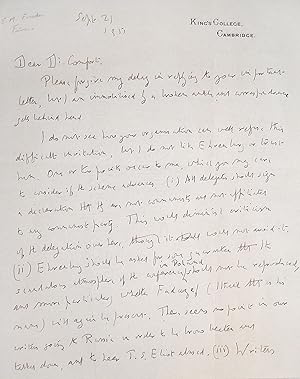 E. M. Forster
Sept. 21
1951
KING'S COLLEGE,
CAMBRIDGE.
Dear Dr. Comfort,
Please forgive my delay in replying to your important
letter, but I am immobilised by a broken ankle and correspondence
gets behind hand.
I do not see how your organisation can well refuse this
difficult invitation, but I do not like Ehrenburg or trust
him. One or two points occur to me, which you may care
to consider if the scheme advances. (i) All delegates should sign
a declaration that they are not communists and not affiliated
to any communist party. This would diminish criticism
of the delegation over here, though it would not avoid it.
(ii) Ehrenburg should be asked for some guarantee that the
scandalous atmosphere of the Poland
conference should not be reproduced,
and more particularly whether Fadayef (I think that is his
name) will again be present. There seems no point in our
writers going to Russia in order to be brow beaten and
ticked down, and to hear T. S. Eliot abused. (iii) Writers